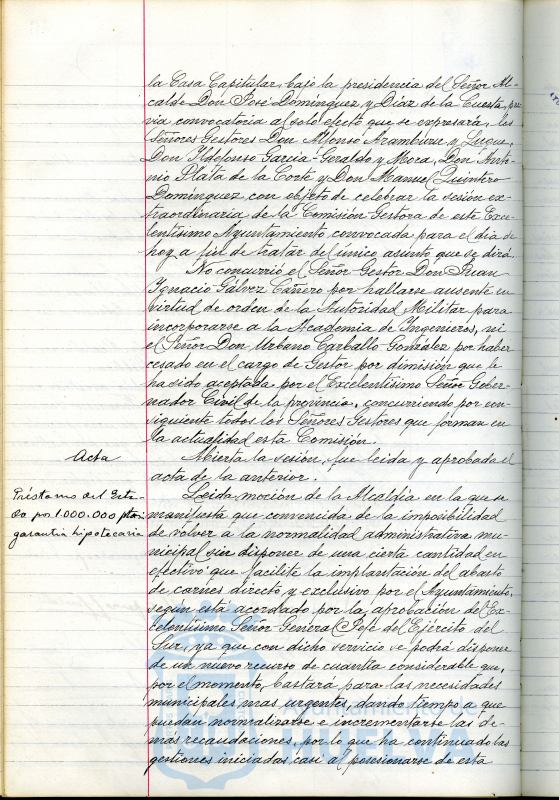 la Casa Capitular, bajo la presidencia del Señor Al-
calde Don José Domínguez y Díaz de la Cuesta, pre-
via convocatoria al solo efecto que se expresará, los
Señores Gestores Don Alfonso Aramburu y Luque,
Don Ildefonso García-Geraldo y Mora, Don Anto-
nio Plata de la Corte y Don Manuel Quintero
Domínguez con objeto de celebrar la sesión ex-
traordinaria de la Comisión Gestora de este Exce-
lentísimo Ayuntamiento convocada para el día de
hoy a fin de tratar del único asunto que se dirá.
No concurrió el Señor Gestor Don Juan
Ignacio Gálvez Cañero por hallarse ausente en
virtud de orden de la Autoridad Militar para
incorporarse a la Academia de Ingenieros, ni
el Señor Don Urbano Carballo González por haber
cesado en el cargo de Gestor por dimisión que le
ha sido aceptada por el Excelentísimo Señor Gober-
nador Civil de la provincia, concurriendo por con-
siguiente todos los Señores Gestores que forman en
la actualidad esta Comisión.
Acta
Abierta la sesión, fue leida y aprobada el
acta de la anterior.
Préstamo del Esta-
do por 1.000.000 ptas.
garantía hipotecaria
Leida moción de la Alcaldía en la que se
manifiesta que convencida de la imposibilidad
de volver a la normalidad administrativa mu-
nicipal sin disponer de una cierta cantidad en
efectivo que facilite la implantación del abasto
de carnes directo y exclusivo por el Ayuntamiento,
según está acordado por la aprobación del Ex-
celentísimo Señor General Jefe del Ejército del
Sur, ya que con dicho servicio se podrá disponer
de un nuevo recurso de cuantía considerable que,
por el momento, bastará para las necesidades
municipales mas urgentes, dando tiempo a que
puedan normalizarse e incrementarse las de-
más recaudaciones, por lo que ha continuado las
gestiones iniciadas casi al posesionarse de esta
HUELVA